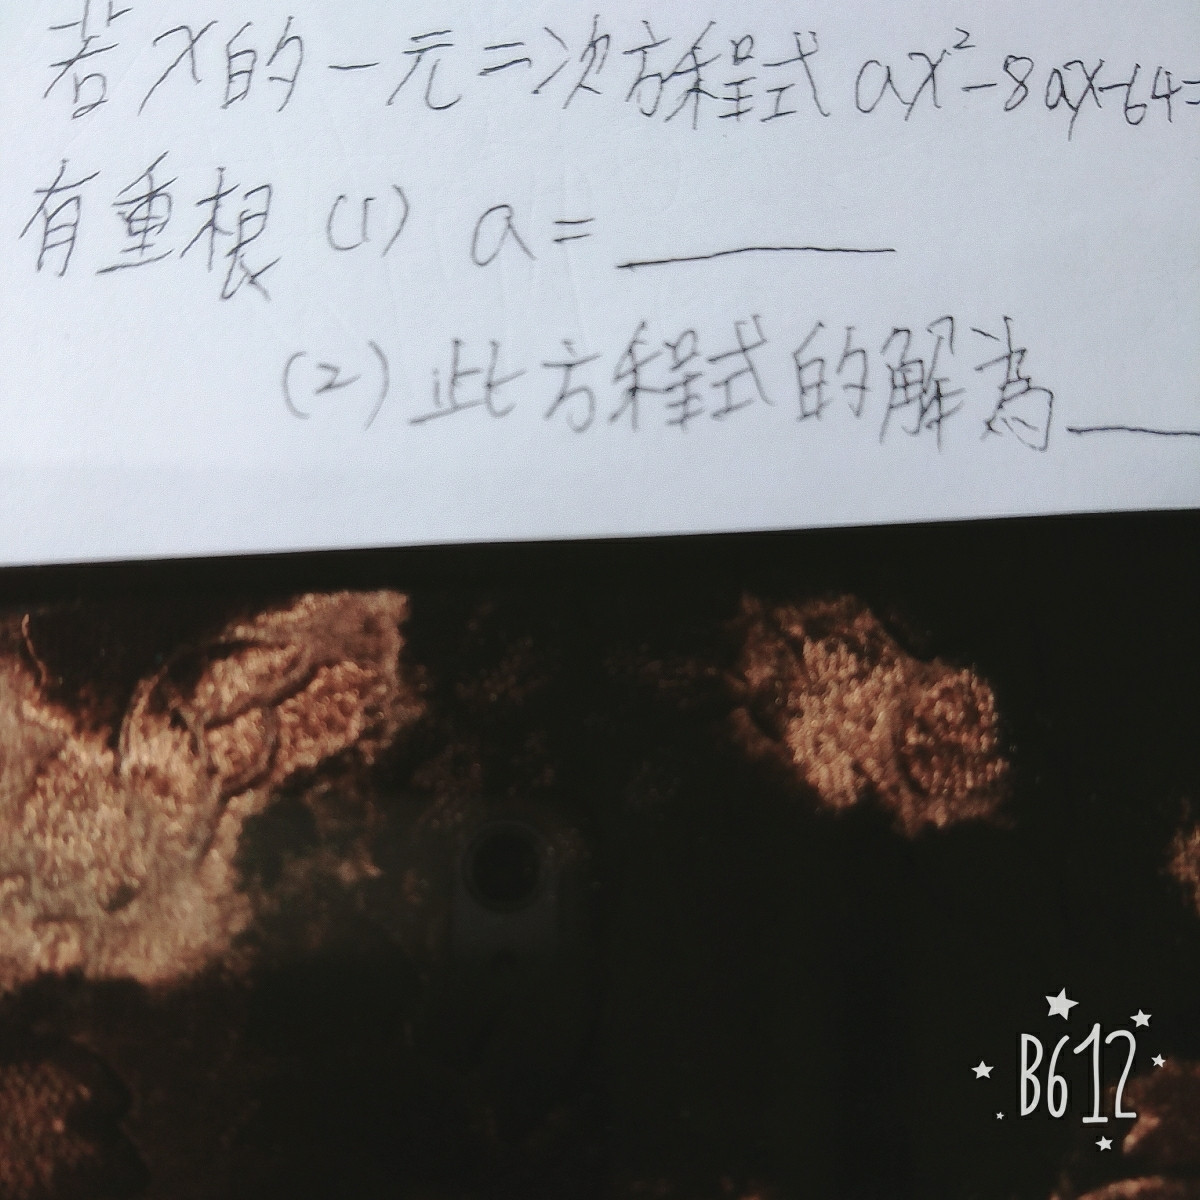 若x的一元二次方程式 ax²-8ax-64=
有重根 (1) a= ______
(2) 此方程式的解為____
B612